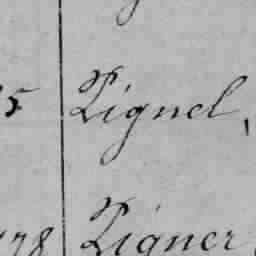 5 Lignel,
78 Ligner